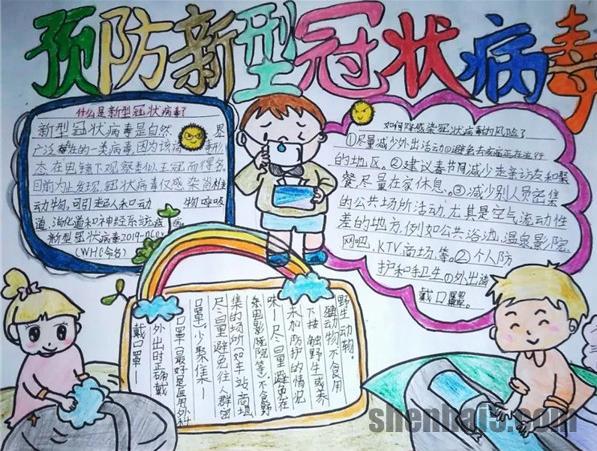 预防新型冠状病毒
什么是新型冠状病毒?
新型冠状病毒是自然
广泛
的一类病毒因为该病毒形
态在电镜下观察类似王冠而得名
目前为止发现,冠状病毒仅感染脊椎
动物,可引起人和动物呼吸
道、消化道和神经系统疾病
新型冠状病毒2019-nCoV
(WHO命名)
如何降感染冠状病毒的风险?
①尽量减少外出活动①避免去疫症正在流行
的地区。②建议春节减少走亲访友和聚
餐尽量在家休息。③减少到人员密集
的公共场所活动,尤其是空气流动性
差的地方,例如公共浴池、温泉影院
网吧、KTV商场等。②个人防
护和手卫生①外出请
戴口罩。
野生动物、
下接触野生或养
未加防护的情况
末一尽量避免在
亲电影院院等、不食野
集的场所如车站商埸
尽量避免往人群密
口罩少聚佳末一
口罩(最好是医用外科
外出时正确戴
戴口罩一
shenhaiS.com